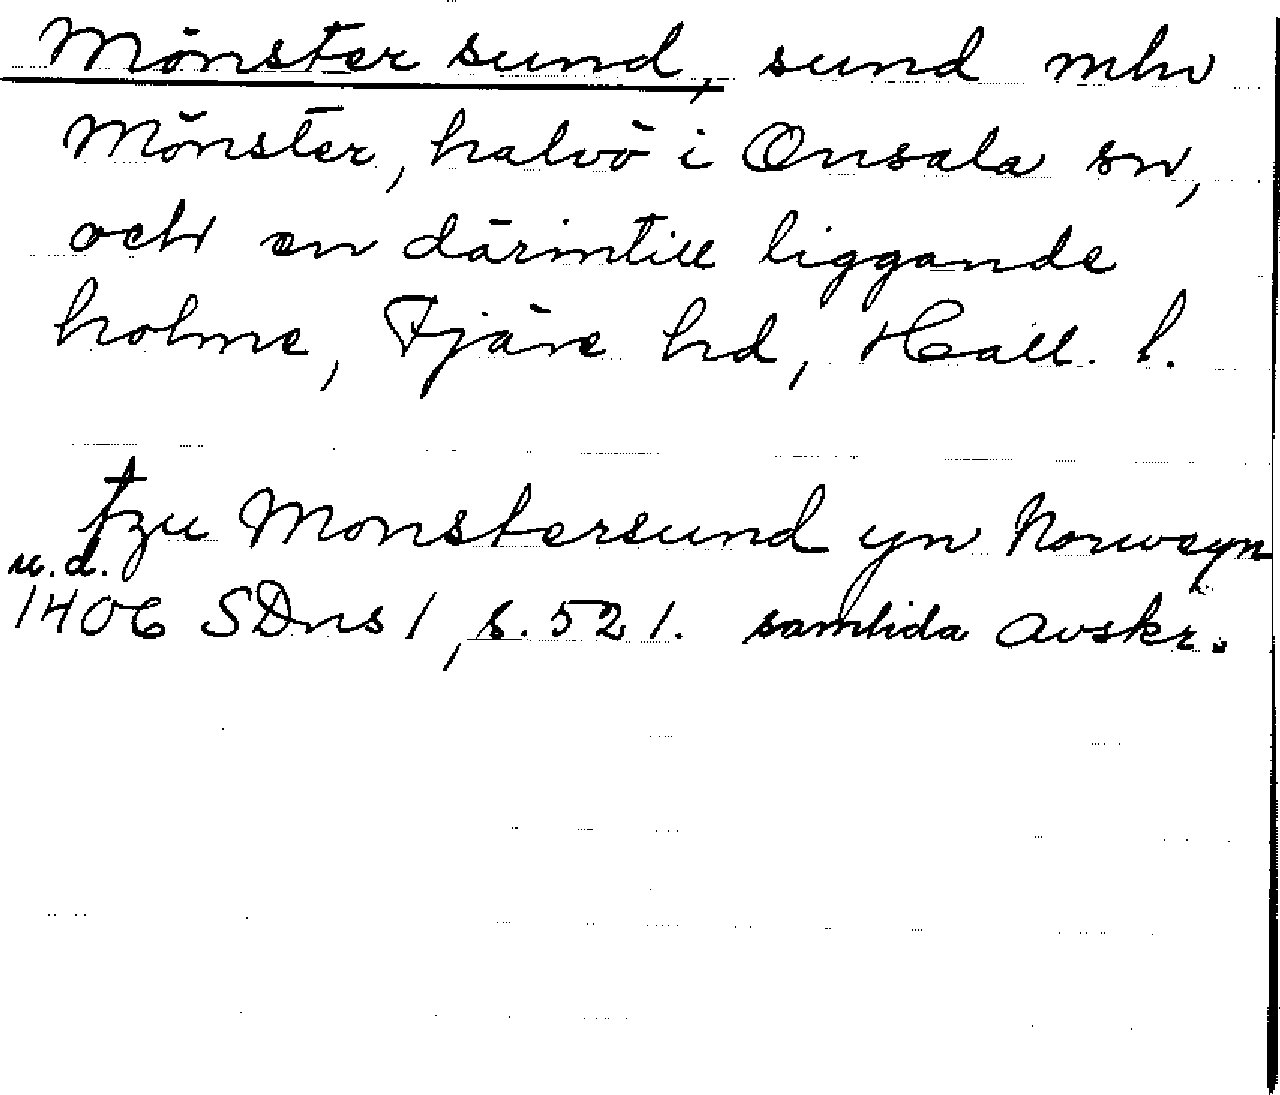 Mönster sund, sund mln
Mönster, halvö i Onsala sn,
och en därintill liggande
holme, Fjäre hd, Hall. l.
tzu Monstersund yn Norweyn
u.d.
1406 SDns 1, s. 521. samtida avskr.